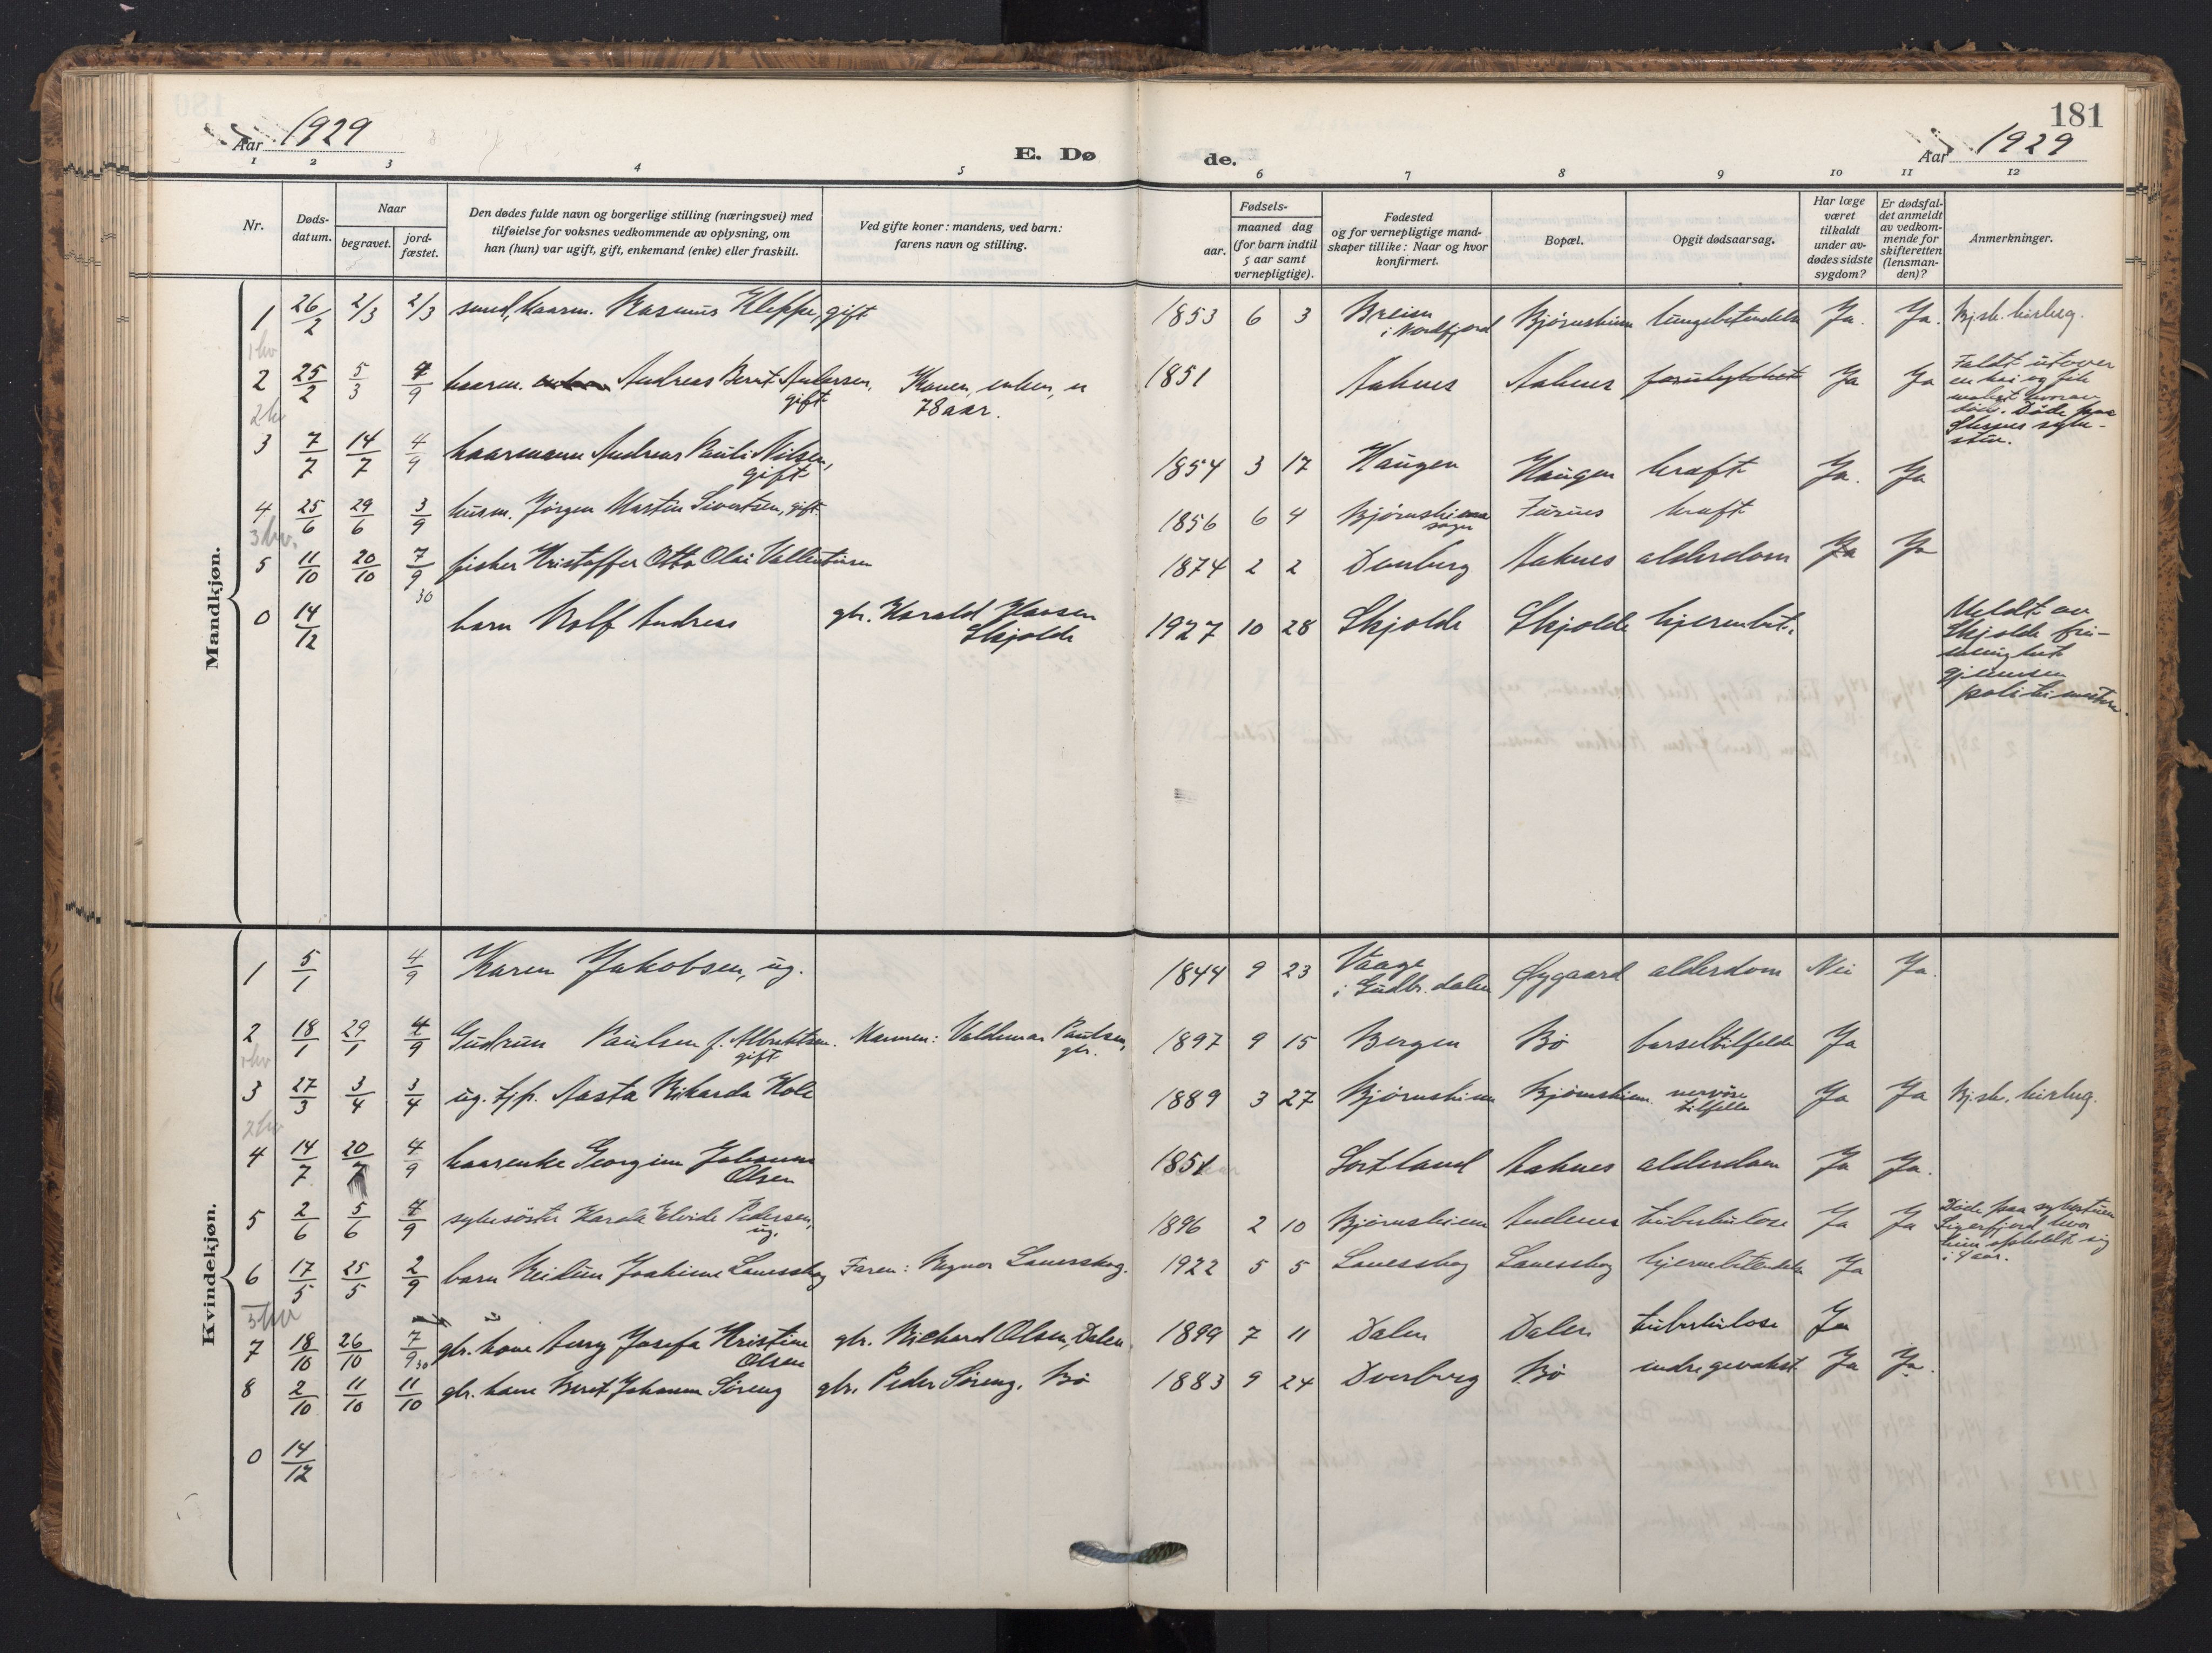 181
Aar 1929
E. Døde.
Aar 1929
1 2 3 4 5 6 7 8 9 10 11 12
Nr.
Døds-datum.
Naar
begravet.
jord-fæstet.
Den dødes fulde navn og borgerlige stilling (næringsvei) med
tilføielse for voksnes vedkommende av oplysning, om
han (hun) var ugift, gift, enkemand (enke) eller fraskilt.
Ved gifte koner: mandens, ved barn:
farens navn og stilling.
Fødsels-
aar.
maaned dag
(for barn indtil
5 aar samt
vernepligtige).
Fødested
og for vernepligtige mand-
skaper tillike: Naar og hvor
konfirmert.
Bopæl.
Opgit dødsaarsag.
Har læge
været
tilkaldt
under av-
dødes sidste
sygdom?
Er dødsfal-
det anmeldt
av vedkom-
mende for
skifteretten
(lensman-
den)?
Anmerkninger.
Mandkjøn.
1 26/2 2/3 2/3 smed, kaarm. Rasmus Kleppe, gift 1853 6 3 Breim i Nordfjord Bjørnskinn lungebetendelse Ja. Ja. Bjsk. kirkeg.
1 hv
2 25/2 5/3 4/9 kaarm. Andreas Berit Andersen, gift Konen, enken, er 78 aar. 1851 Aaknes Aaknes forulykket Ja Ja Faldt utover en kai og fik Døde paa
2 hv
3 7/7 14/7 4/9 kaarmann Andreas Pauli Nilsen, gift 1854 3 17 Haugen Haugen kræft Ja. Ja
4 25/6 29/6 3/9 husm. Jørgen Martin Sivertsen, gift. 1856 6 4 Bjørnskinn Furnes kræft
3 hv.
5 11/10 20/10 7/9 30 fisker Kristoffer Otto Olai Vallentinsen 1874 2 2 Dverberg Aaknes alderdom Ja Ja
0 14/12 barn Rolf Andreas gbr. Harald Hansen Skjolde 1927 10 28 Skjolde Skjolde hjernebet. Meldt av Skjolde fri- politimesteren.
Kvindekjøn.
1 5/1 4/9 Karen Jakobsen, ug. 1844 9 23 Vaage i Gudbr.dalen Øygaard alderdom Nei Ja.
2 18/1 29/1 4/9 Gudrun Paulsen f. Albrektsen. gift Mannen: Valdemar Paulsen, gbr. 1897 9 15 Bergen Bø barseltilfelde Ja
1 hv
3 27/3 3/4 3/4 ug. tjp. Aasta Rikarda Hole 1889 3 27 Bjørnskinn Bjørnskinn nervøse tilfelle Ja Ja Bjsk. kirkeg.
2 hv
4 14/7 20/7 4/9 kaarenke Georgine Johanna Olsen 1851 Sortland Aaknes alderdom Ja Ja.
5 2/6 5/6 4/9 sykesøster Harda Elvide Pedersen, ug. 1896 2 10 Bjørnskinn Andenes tuberkulose Ja Ja Døde paa sykestuen Sigerfjord hvor hun opholdt sig i 4 aar.
6 17/5 25/5 2/9 barn Reidun Joakime Lanesskog Faren: Regnor Lanesskog. 1922 5 5 Lanesskog Lanesskog hjernebetendelse Ja
3 hv
7 18/10 26/10 7/9 30 gbr. kone Josefa Kristine Olsen gbr. Richard Olsen, Dalen 1899 7 11 Dalen Dalen tuberkulose Ja
8 2/10 11/10 11/10 gbr. kone Berit Johanna Søreng gbr. Peder Søreng. Bø 1883 9 24 Dverberg Bø indre gevækst Ja Ja.
0 14/12